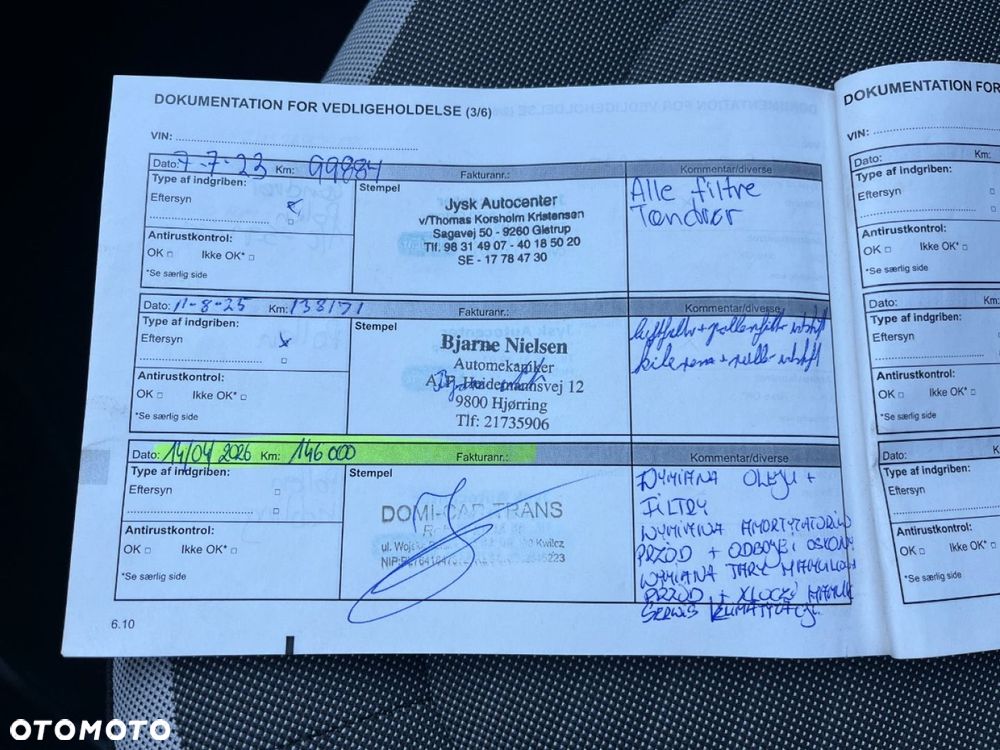 DOKUMENTATION FOR VEDLIGEHOLDELSE (3/6)
VIN:
Dato: 7-7-23 Km: 99884 Fakturanr.: Kommentar/diverse
Type af indgriben:
Eftersyn
Antirustkontrol:
OK Ikke OK*
*Se særlig side
Stempel
Jysk Autocenter
v/Thomas Korsholm Kristensen
Sagavej 50 - 9260 Gistrup
Tlf. 98 31 49 07 - 40 18 50 20
SE - 17 78 47 30
Alle filtre
Tændrør
Dato: 11-8-25 Km: 138171 Fakturanr.: Kommentar/diverse
Type af indgriben:
Eftersyn
Antirustkontrol:
OK Ikke OK*
*Se særlig side
Stempel
Bjarne Nielsen
Automekaniker
A.F. Heidemannsvej 12
9800 Hjørring
Tlf: 21735906
Dato: 14/04 2026 Km: 146 000 Fakturanr.: Kommentar/diverse
Type af indgriben:
Eftersyn
Antirustkontrol:
OK Ikke OK*
*Se særlig side
Stempel
DOMI-CAR TRANS
ul. Kwilcz
WYMIANA OLEJU +
FILTRY
WYMIANA AMORTYZATORÓW
PRZÓD + ODBOJE I OSŁONY
WYMIANA TARCZ
PRZÓD + KLOCKI
SERWIS KLIMATYZACJI
6.10
DOKUMENTATION FOR
VIN:
Dato: Km:
Type af indgriben:
Eftersyn
Antirustkontrol:
OK Ikke OK*
*Se særlig side
Dato: Km:
Type af indgriben:
Eftersyn
Antirustkontrol:
OK Ikke OK*
*Se særlig side
Dato: Km:
Type af indgriben:
Eftersyn
Antirustkontrol:
OK Ikke OK*
*Se særlig side
OTOMOTO